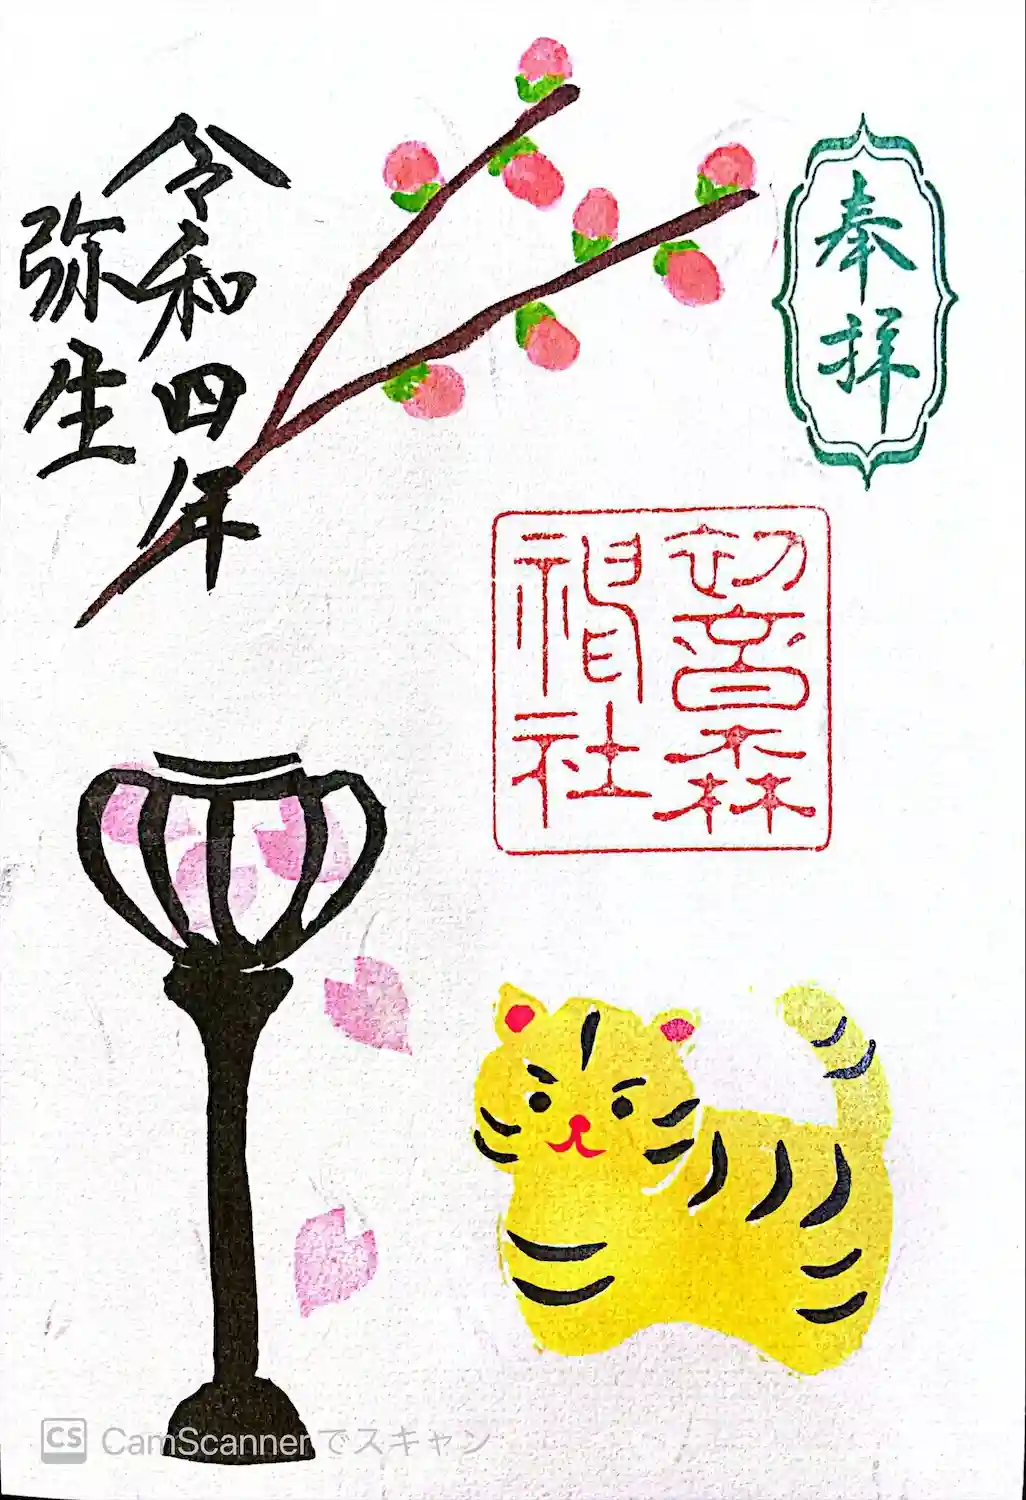 奉拝
初音森
神社
令和四年
弥生
CS CamScannerでスキャン